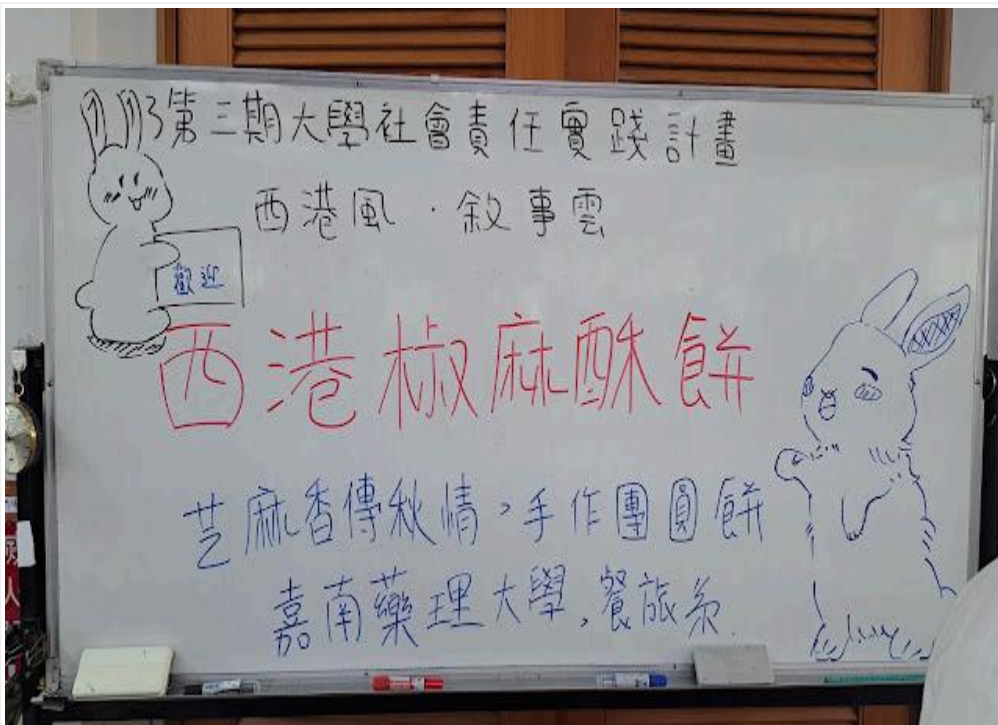 113第三期大學社會責任實踐計畫
西港風·敘事雲
歡迎
西港椒麻酥餅
芝麻香傳秋情,手作團圓餅
嘉南藥理大學,餐旅系